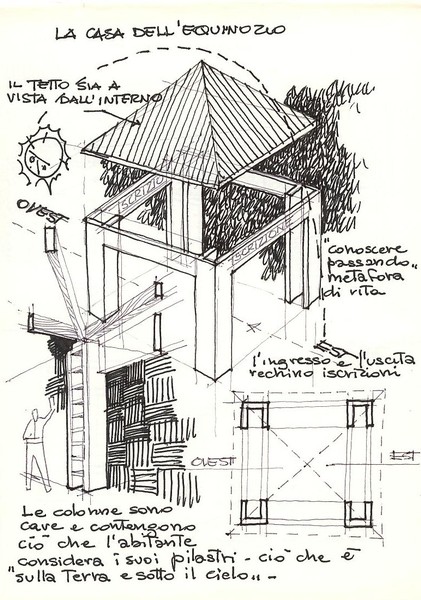 LA CASA DELL'EQUINOZIO
IL TETTO SIA A
VISTA DALL'INTERNO
OVEST
ISCRIZIONI
ISCRIZIONI
"conoscere
passando"
metafora
di vita
EST
l'ingresso e l'uscita
rechino iscrizioni
OVEST
EST
Le colonne sono
cave e contengono
ciò che l'abitante
considera i suoi pilastri - ciò che è
"sulla Terra e sotto il cielo"..